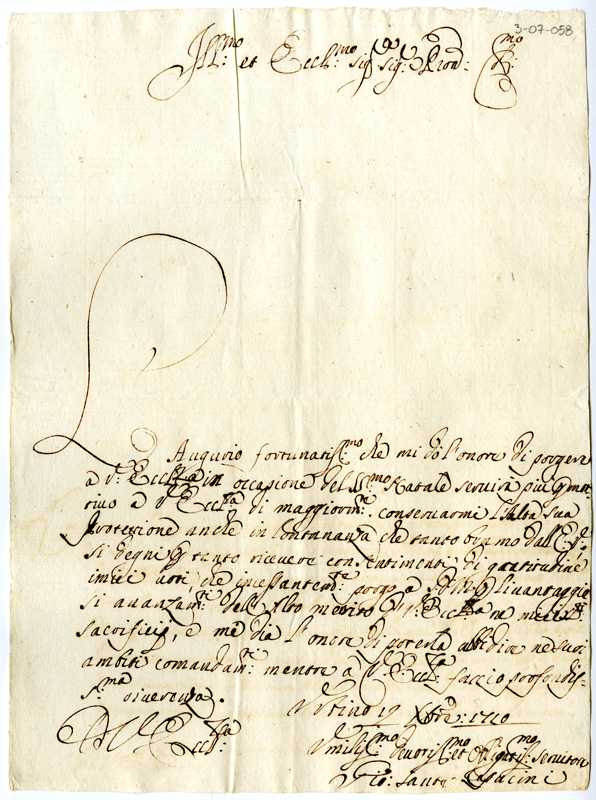 3-07-058
Ill:mo et Ecc:mo sig:r sig:r e Pron: C:mo
L'Augurio fortunatiss:mo che mi dò l'onore di porgere
à V: Ecc:za in occasione del SS:mo Natale servirà più p mo-
tivo à V: Ecc:za di maggiorm:te conservarmi l'Alta sua
Protezione anche in lontananza che tanto bramo dall'E.
si degni p tanto ricevere con sentimenti di gratitudine
i miei voti, che incessantem:te porgo à
si avanzam:ti dell'Alto merito di V: Ecc:za ne miei
sacrificij, e mi dia l'onore di poterla obbedire ne suoi
ambiti comandam:ti mentre à V: Ecc:za faccio profondis-
s:ma riverenza.
Urbino 19 Xbre: 1710
D V Ecc:za
Umiliss:mo Devotiss:mo et Obligatiss:mo servitore
Gio: Santi